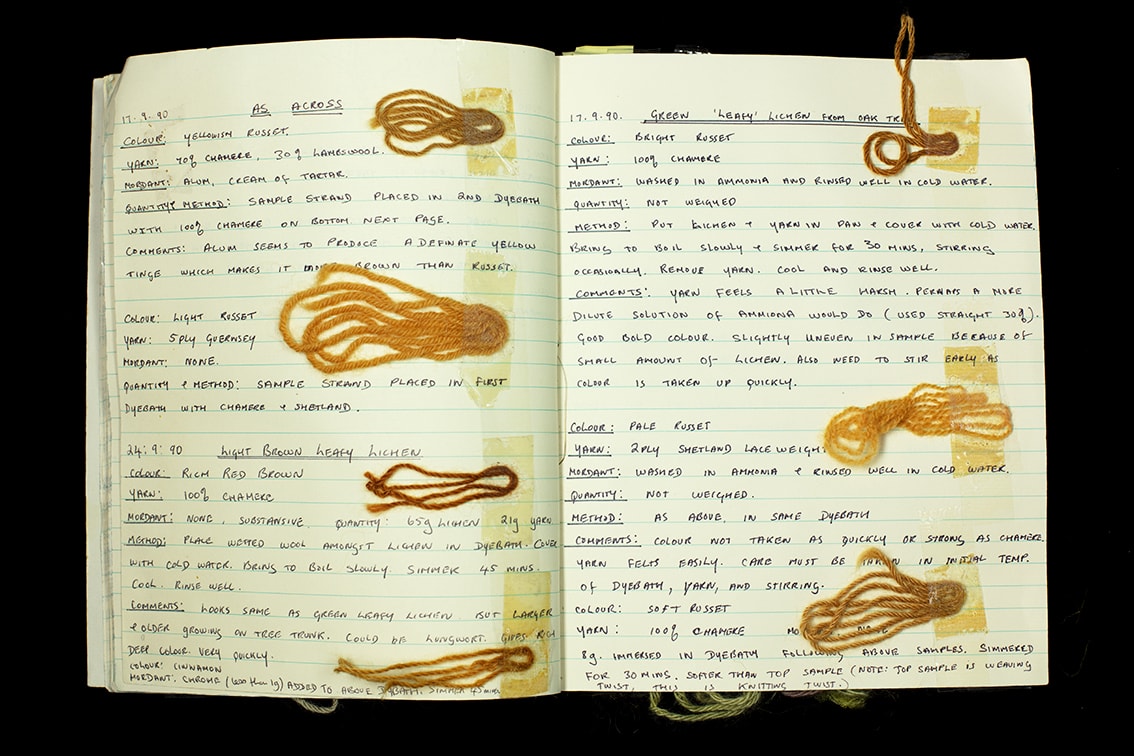 17.9.90 AS ACROSS
COLOUR: YELLOWISH RUSSET.
YARN: 70% CHAMERE, 30% LAMBSWOOL.
MORDANT: ALUM, CREAM OF TARTAR.
QUANTITY & METHOD: SAMPLE STRAND PLACED IN 2ND DYEBATH
WITH 100% CHAMERE ON BOTTOM NEXT PAGE.
COMMENTS: ALUM SEEMS TO PRODUCE A DEFINATE YELLOW
TINGE WHICH MAKES IT MORE BROWN THAN RUSSET.
COLOUR: LIGHT RUSSET
YARN: 5PLY GUERNSEY
MORDANT: NONE.
QUANTITY & METHOD: SAMPLE STRAND PLACED IN FIRST
DYEBATH WITH CHAMERE & SHETLAND.
24:9:90 LIGHT BROWN LEAFY LICHEN
COLOUR: RICH RED BROWN
YARN: 100% CHAMERE
MORDANT: NONE, SUBSTANSIVE. QUANTITY: 65g LICHEN 21g YARN
METHOD: PLACE WETTED WOOL AMONGST LICHEN IN DYEBATH. COVER
WITH COLD WATER. BRING TO BOIL SLOWLY. SIMMER 45 MINS.
COOL. RINSE WELL.
COMMENTS: LOOKS SAME AS GREEN LEAFY LICHEN BUT LARGER
& OLDER GROWING ON TREE TRUNK. COULD BE LUNGWORT. GIVES RICH
DEEP COLOUR. VERY QUICKLY.
COLOUR: CINNAMON
MORDANT: CHROME (less than 1g) ADDED TO ABOVE DYEBATH. SIMMER 45 mins
17.9.90. GREEN 'LEAFY' LICHEN FROM OAK
COLOUR: BRIGHT RUSSET
YARN: 100% CHAMERE
MORDANT: WASHED IN AMMONIA AND RINSED WELL IN COLD WATER.
QUANTITY: NOT WEIGHED
METHOD: PUT LICHEN & YARN IN PAN & COVER WITH COLD WATER.
BRING TO BOIL SLOWLY & SIMMER FOR 30 MINS, STIRRING
OCCASIONALLY. REMOVE YARN. COOL AND RINSE WELL.
COMMENTS: YARN FEELS A LITTLE HARSH. PERHAPS A MORE
DILUTE SOLUTION OF AMMIONA WOULD DO (USED STRAIGHT 30%).
GOOD BOLD COLOUR. SLIGHTLY UNEVEN IN SAMPLE BECAUSE OF
SMALL AMOUNT OF LICHEN. ALSO NEED TO STIR EARLY AS
COLOUR IS TAKEN UP QUICKLY.
COLOUR: PALE RUSSET
YARN: 2PLY SHETLAND LACE WEIGHT
MORDANT: WASHED IN AMMONIA & RINSED WELL IN COLD WATER.
QUANTITY: NOT WEIGHED.
METHOD: AS ABOVE, IN SAME DYEBATH
COMMENTS: COLOUR NOT TAKEN AS QUICKLY OR STRONG AS CHAMERE.
YARN FELTS EASILY. CARE MUST BE TAKEN IN INITIAL TEMP.
OF DYEBATH, YARN, AND STIRRING.
COLOUR: SOFT RUSSET
YARN: 100% CHAMERE
8g. IMMERSED IN DYEBATH FOLLOWING ABOVE SAMPLES. SIMMERED
FOR 30 MINS. SOFTER THAN TOP SAMPLE (NOTE: TOP SAMPLE IS WEAVING
TWIST, THIS IS KNITTING TWIST.)